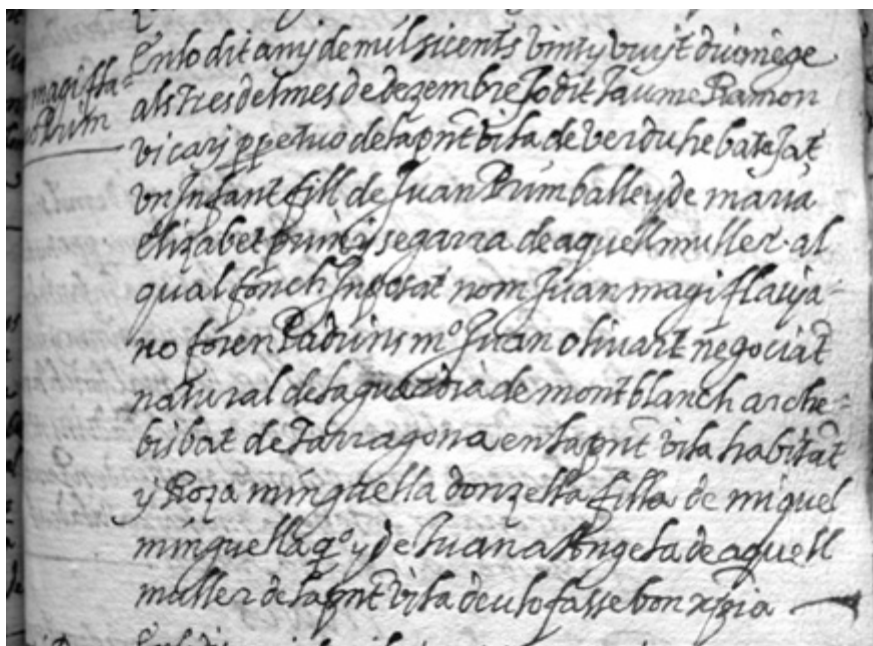 En lo dit any de mil sicents vint y vuyt diumege
als tres del mes de dezembre Jo dit Jaume Ramon
magi fla=
no Prim
vicarj ppetuo de la pnt vila de verdu he batejat
vn Infant fill de Juan Prim balle y de maria
Elizabet prim y segarra de aquell muller. al
qual fonch Inposat nom Juan magi flavja=
no foren Padrins mº Juan olivart negociat
natural de la guardia de montblanch arche=
bisbat de Tarragona en la pnt vila habitat
y Roza minguella donzella filla de miquel
minguella qº y de Juana Angela de aquell
muller de la pnt vila deu lo fasse bon xpia